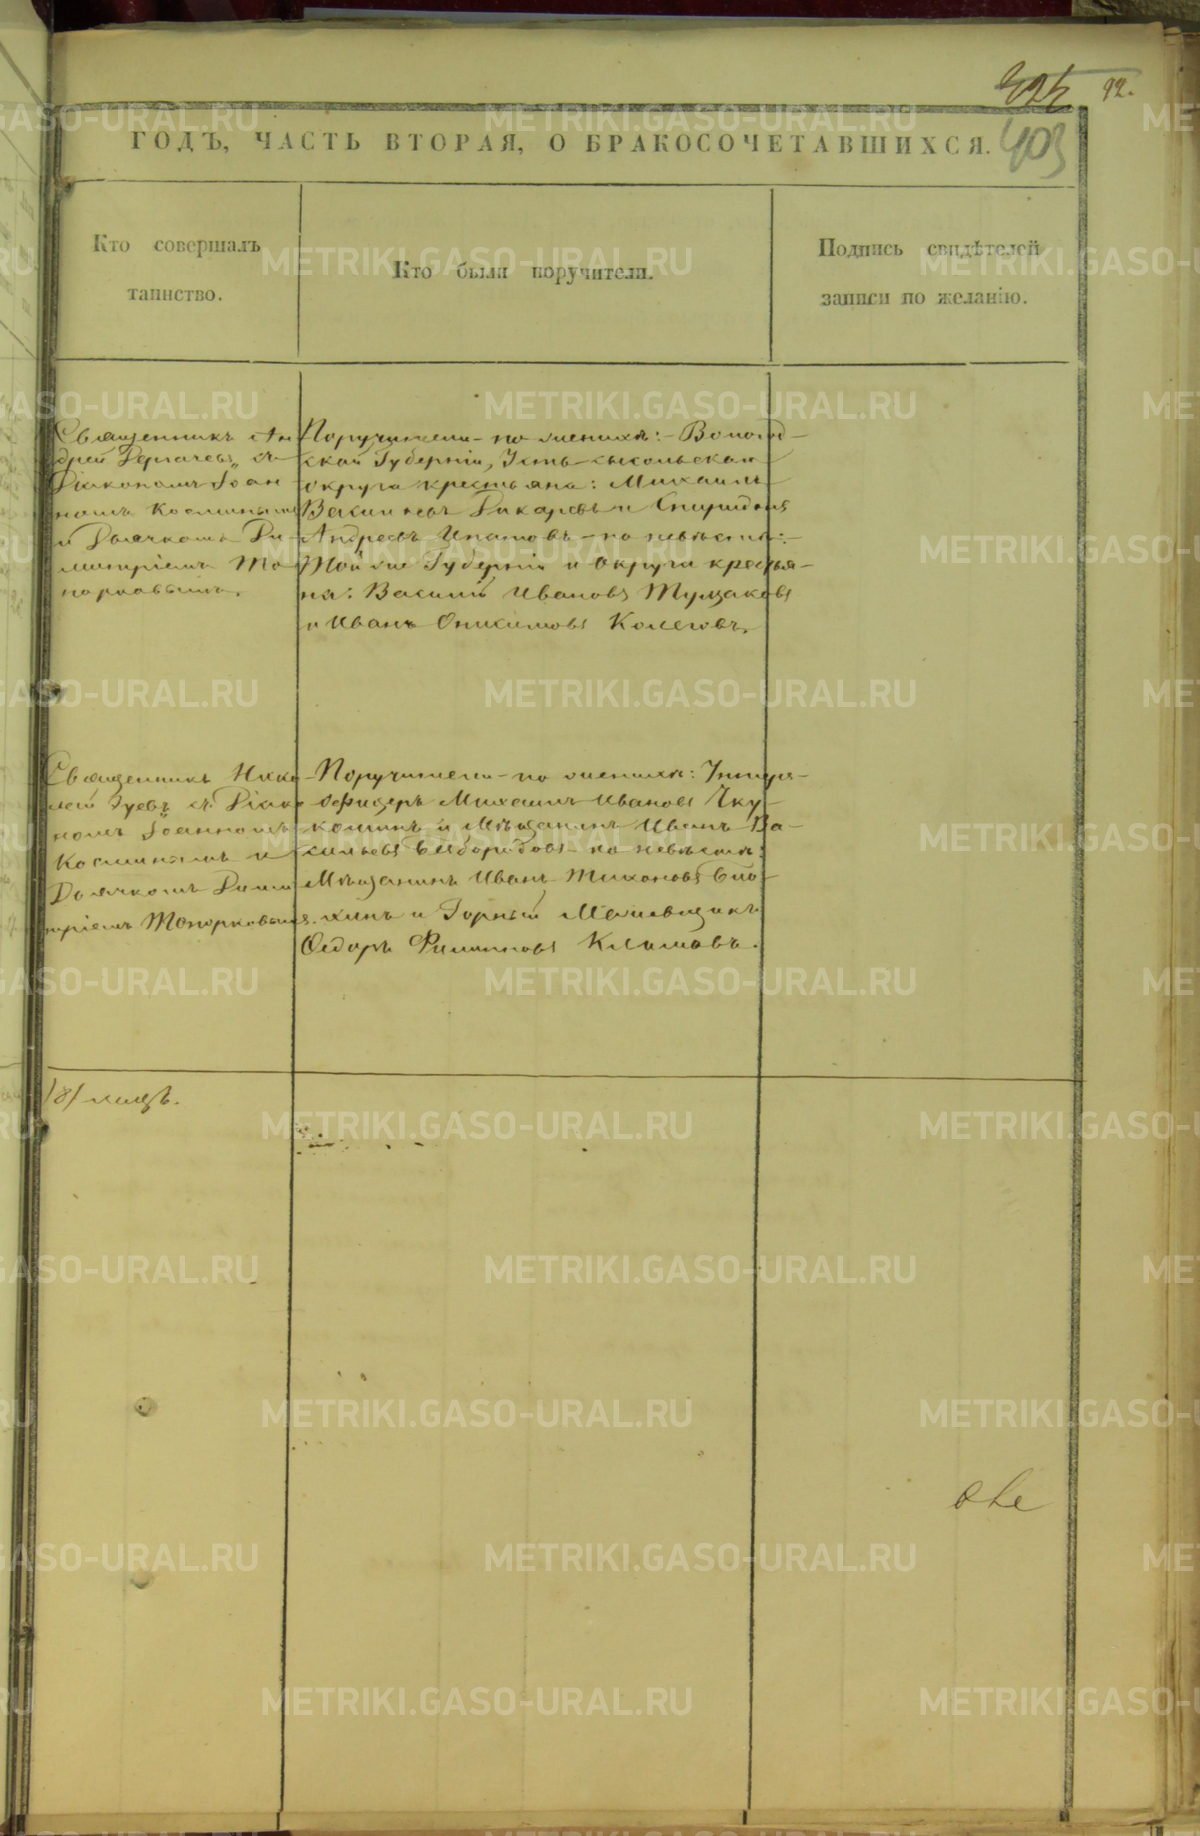 92.
403
ГОДЪ, ЧАСТЬ ВТОРАЯ, О БРАКОСОЧЕТАВШИХСЯ.
Кто совершалъ
таинство.
Кто были поручители.
Подпись свидѣтелей
записи по желанію.
Священникъ Ан
дрей Дергачевъ съ
Діакономъ Іоан
номъ Косминымъ
и Дьячкомъ Ди
митріемъ То
порковымъ.
Поручители – по женихѣ: – Вологод–
ской Губерніи, Усть-сысольскаго
округа крестьяна: Михаилъ
Васильевъ и Спиридонъ
Андреевъ Ипатовъ – по невѣстѣ: –
Той же Губерніи и округа крестья–
на: Василій Ивановъ
и Иванъ Онисимовъ Колеговъ.
Священникъ Нико
лай съ Діако
номъ Іоанномъ
Косминымъ и
Дьячкомъ Дими
тріемъ Топорковымъ.
Поручители – по женихѣ: Унтеръ–
офицеръ Михаилъ Ивановъ Чку–
и Мѣщанинъ Иванъ Ва–
сильевъ – по невѣстѣ:
Мѣщанинъ Иванъ Тихоновъ
и Горный
Ѳедоръ Филиповъ Климовъ.
METRIKI.GASO-URAL.RU